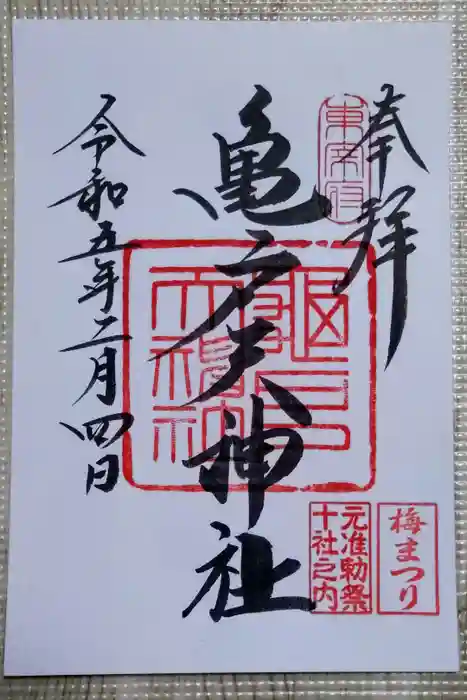 奉拝
東宰府
亀戸天神社
亀戸天神社
令和五年二月四日
梅まつり
元准勅祭
十社之内